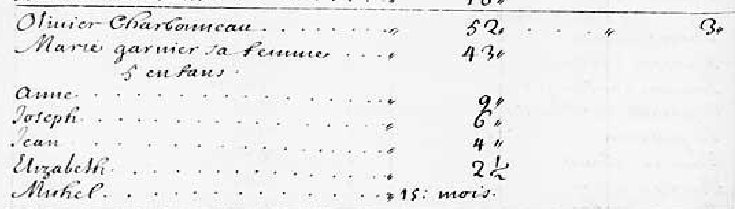 Olivier Charbonneau . . . . . . . . „ 52„ . . . . „ 3„
Marie garnier sa femme . . . . „ 43„
5 enfans.
Anne . . . . . . . . . . . . . . . . „ 9„
Joseph . . . . . . . . . . . . . . . „ 6„
Jean . . . . . . . . . . . . . . . . „ 4„
Elizabeth . . . . . . . . . . . . . . „ 2½
Michel . . . . . . . . . . . . . . . „ 15: mois.